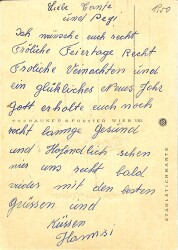 Liebe Tante 1500
und Pegi
Ich wünsche euch recht
Fröliche Feiertage Recht
Froliche Veinachten und
ein glükliches Neues Jahr
Gott erhalte euch noch
recht lannge Gesund
und Hofendlich sehen
wir uns recht bald
wider mit den besten
Grüssen und
Küssen
Hannsi